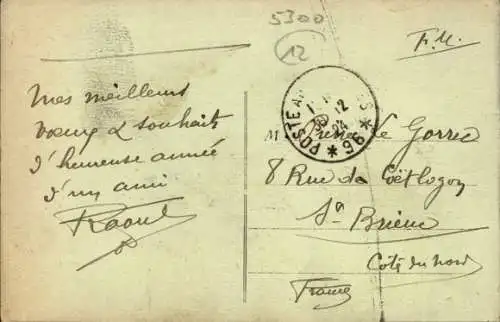 5300
12
F. M.
Mes meilleurs
voeux & souhaits
d'heureuse année
d'un ami
Raoul
POSTE AUX ARMÉES * 96 *
30 12
24
M René Le Gorrec
8 Rue de Coëtlogon
St Brieuc
Côtes du Nord
France